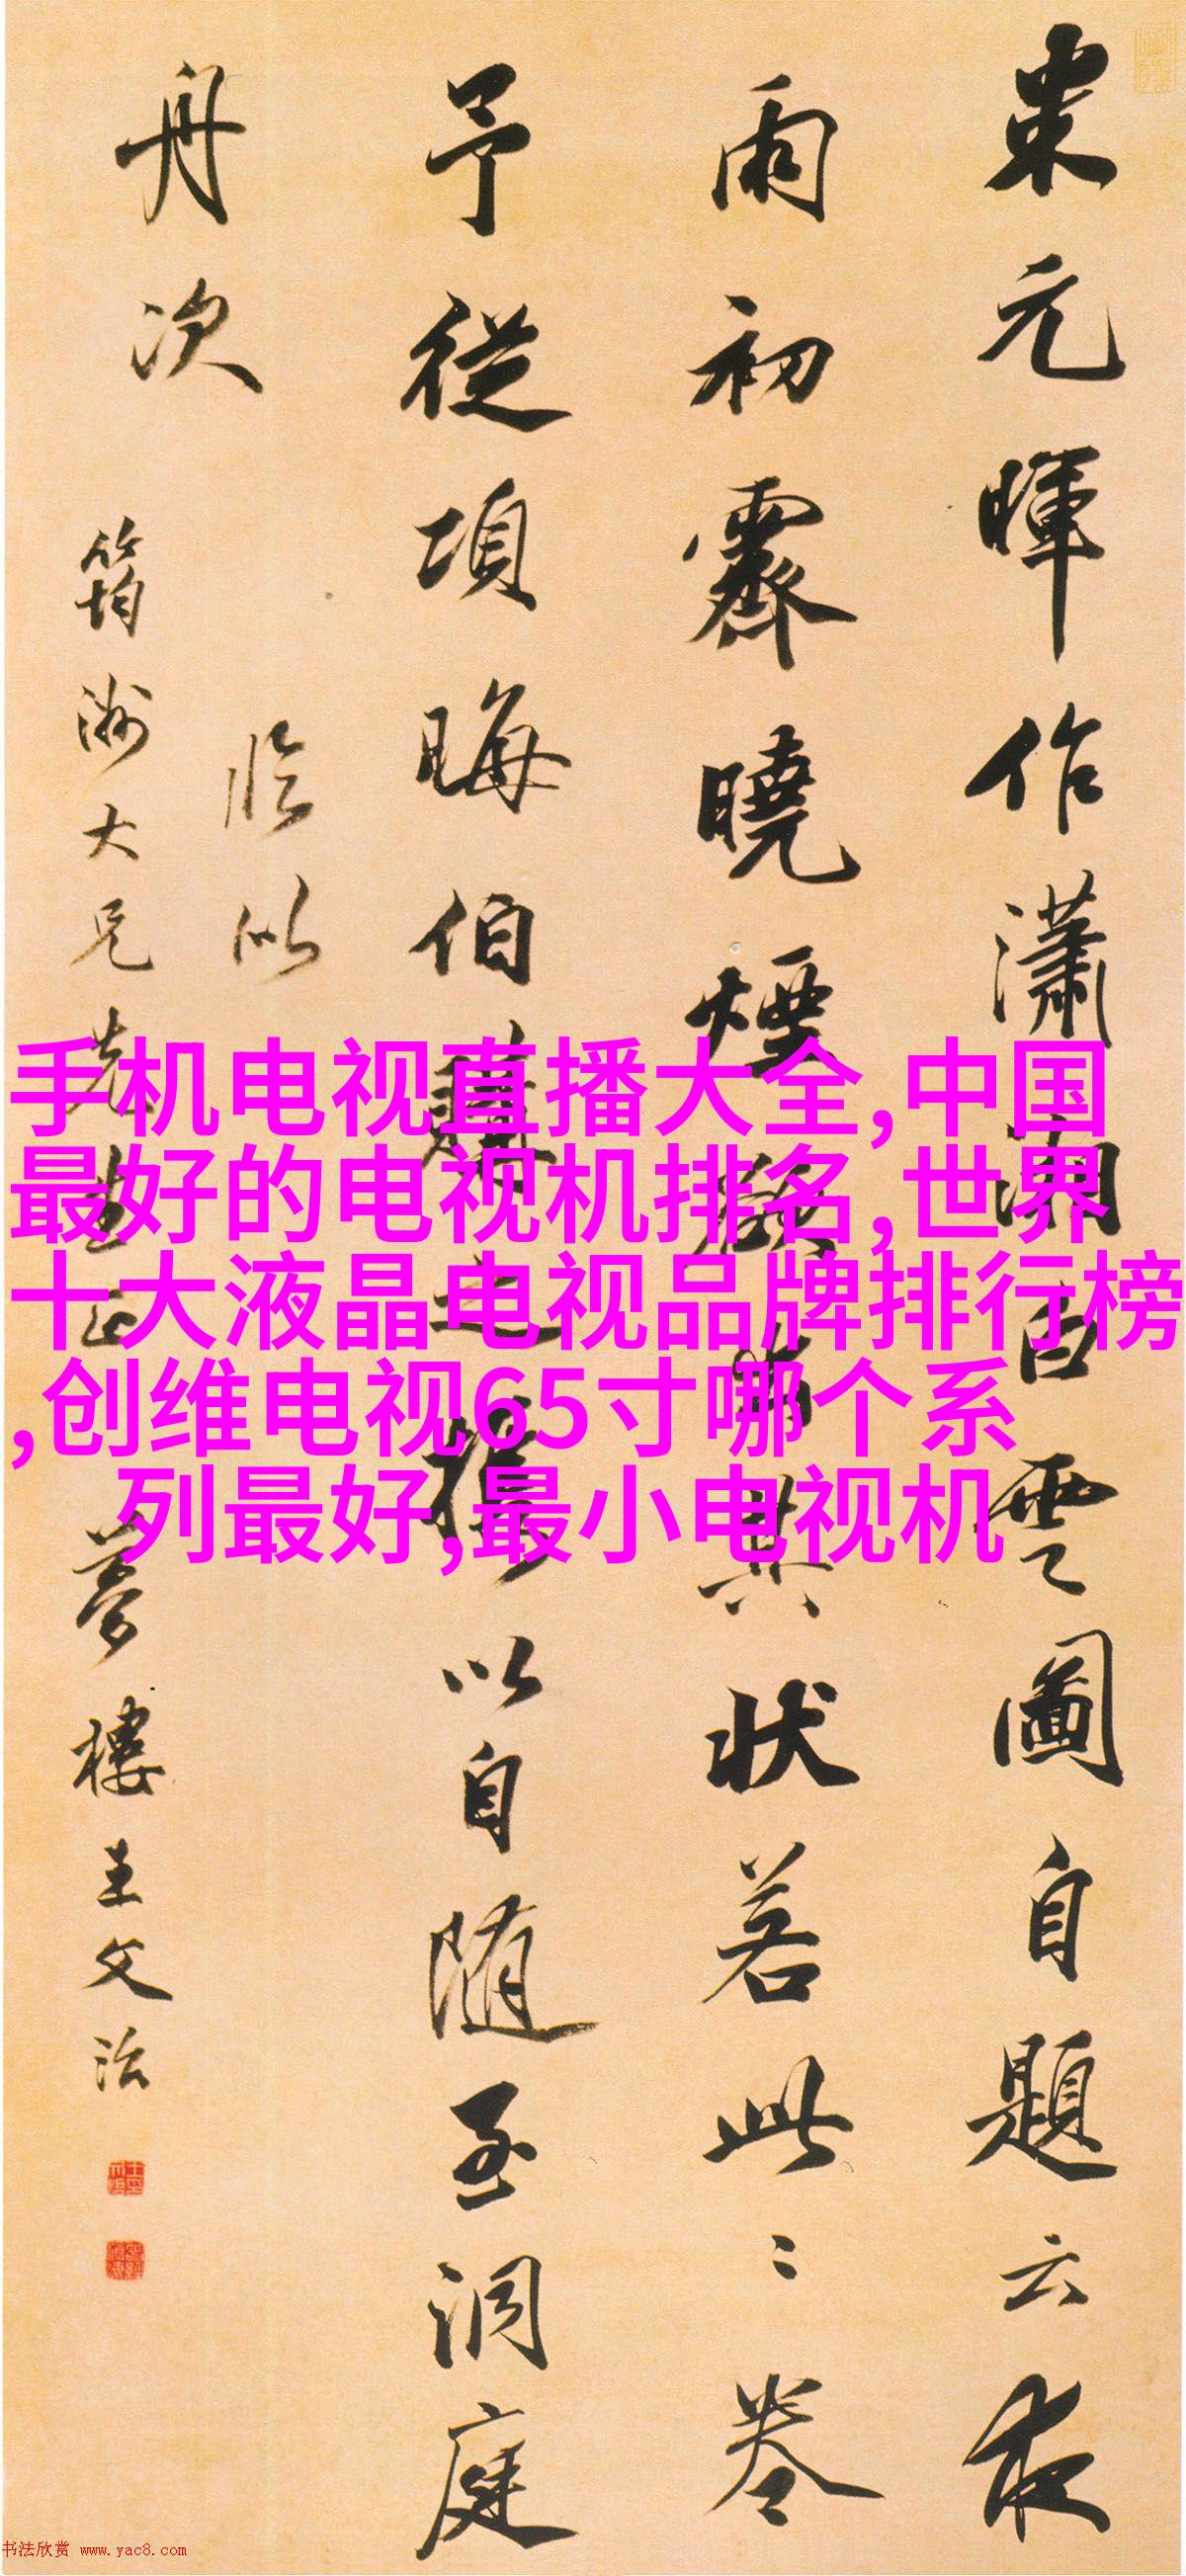 米元暉作瀟湘白雲圖自題云夜
雨初霽曉煙欲出其狀若此〻卷
予從項晦伯購之攜以自隨至洞庭
舟次
臨似
筠洲大兄先生正 夢樓王文治
手机电视直播大全,中国
最好的电视机排名,世界
十大液晶电视品牌排行榜
,创维电视65寸哪个系
列最好,最小电视机
书法欣赏 www.yac8.com